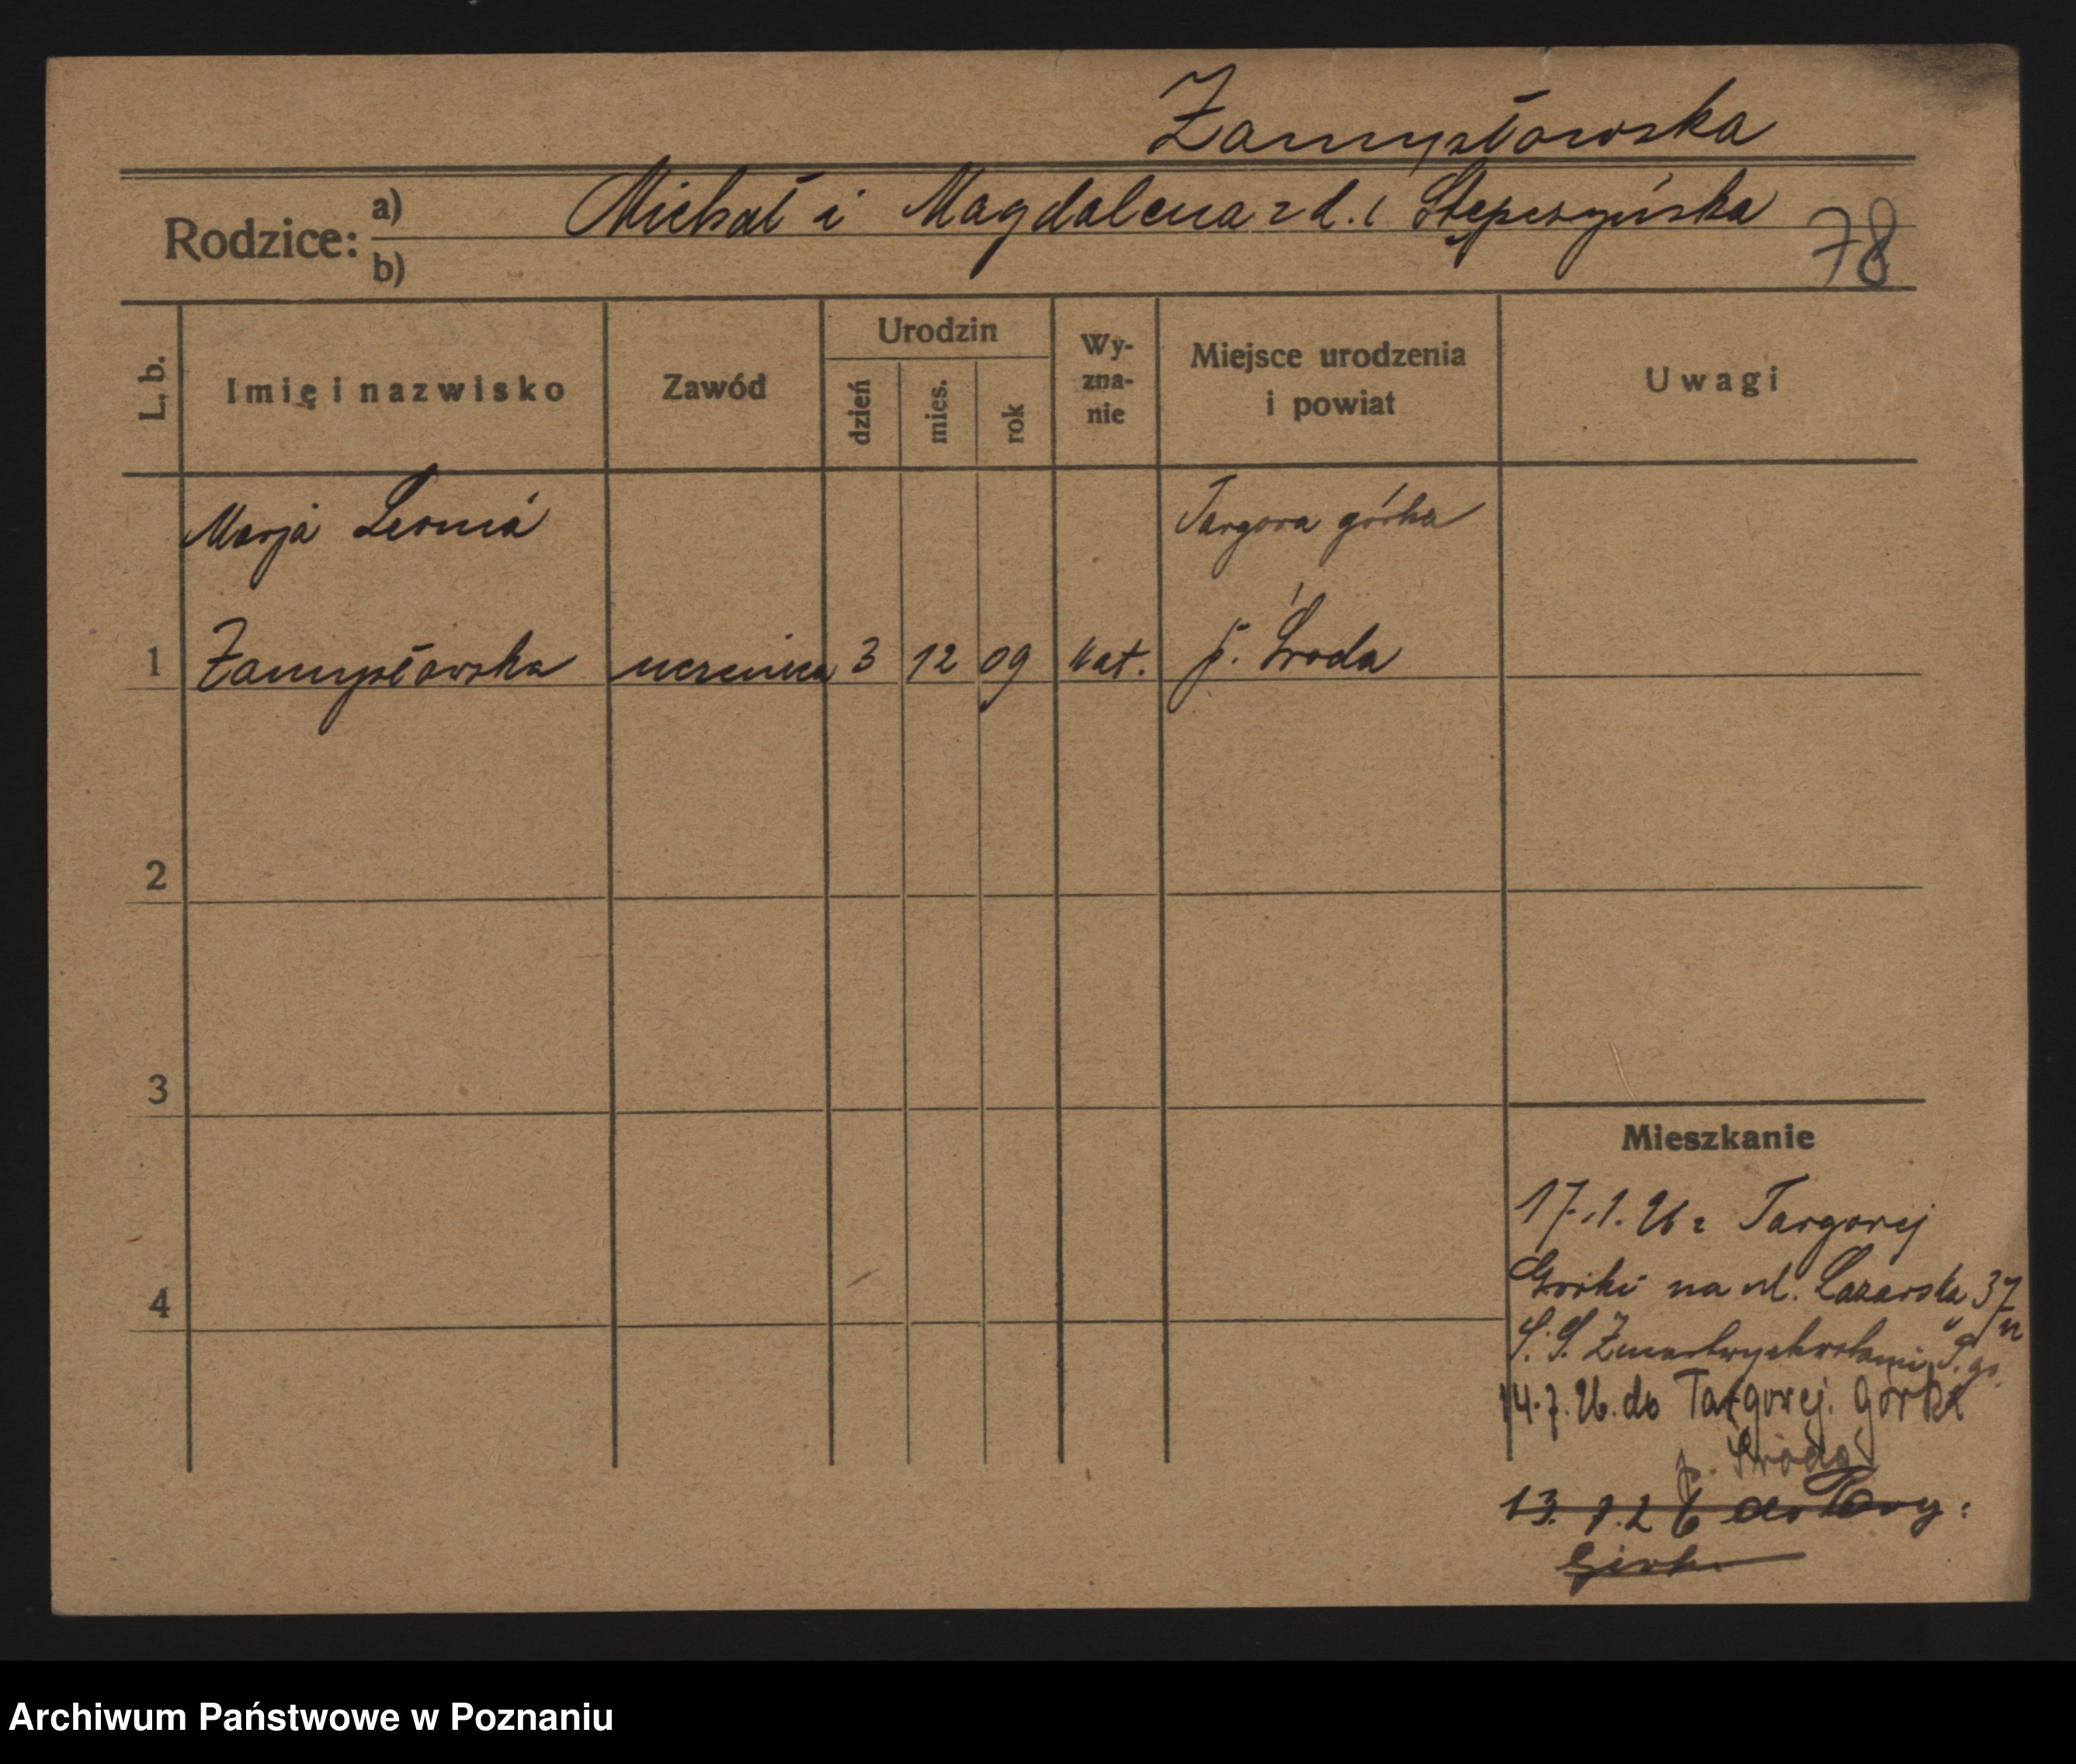 Zamysłowska
Rodzice: a) Michał i Magdalena z d. Stępczyńska
b)
78
L. b. Imię i nazwisko Zawód Urodzin dzień mies. rok Wy-zna-nie Miejsce urodzenia i powiat Uwagi
Marja Leonia Targowa górka
1 Zamysłowska uczenica 3 12 09 kat. p. Środa
2
3
Mieszkanie
17.1.26 z Targowej
4
Górki na ul. Łazarska 37
S. S. Zmartwychwstania
14.7.26. do Targowej Górki
p. Środa
13. 7. 26 do Targ:
Górk
Archiwum Państwowe w Poznaniu